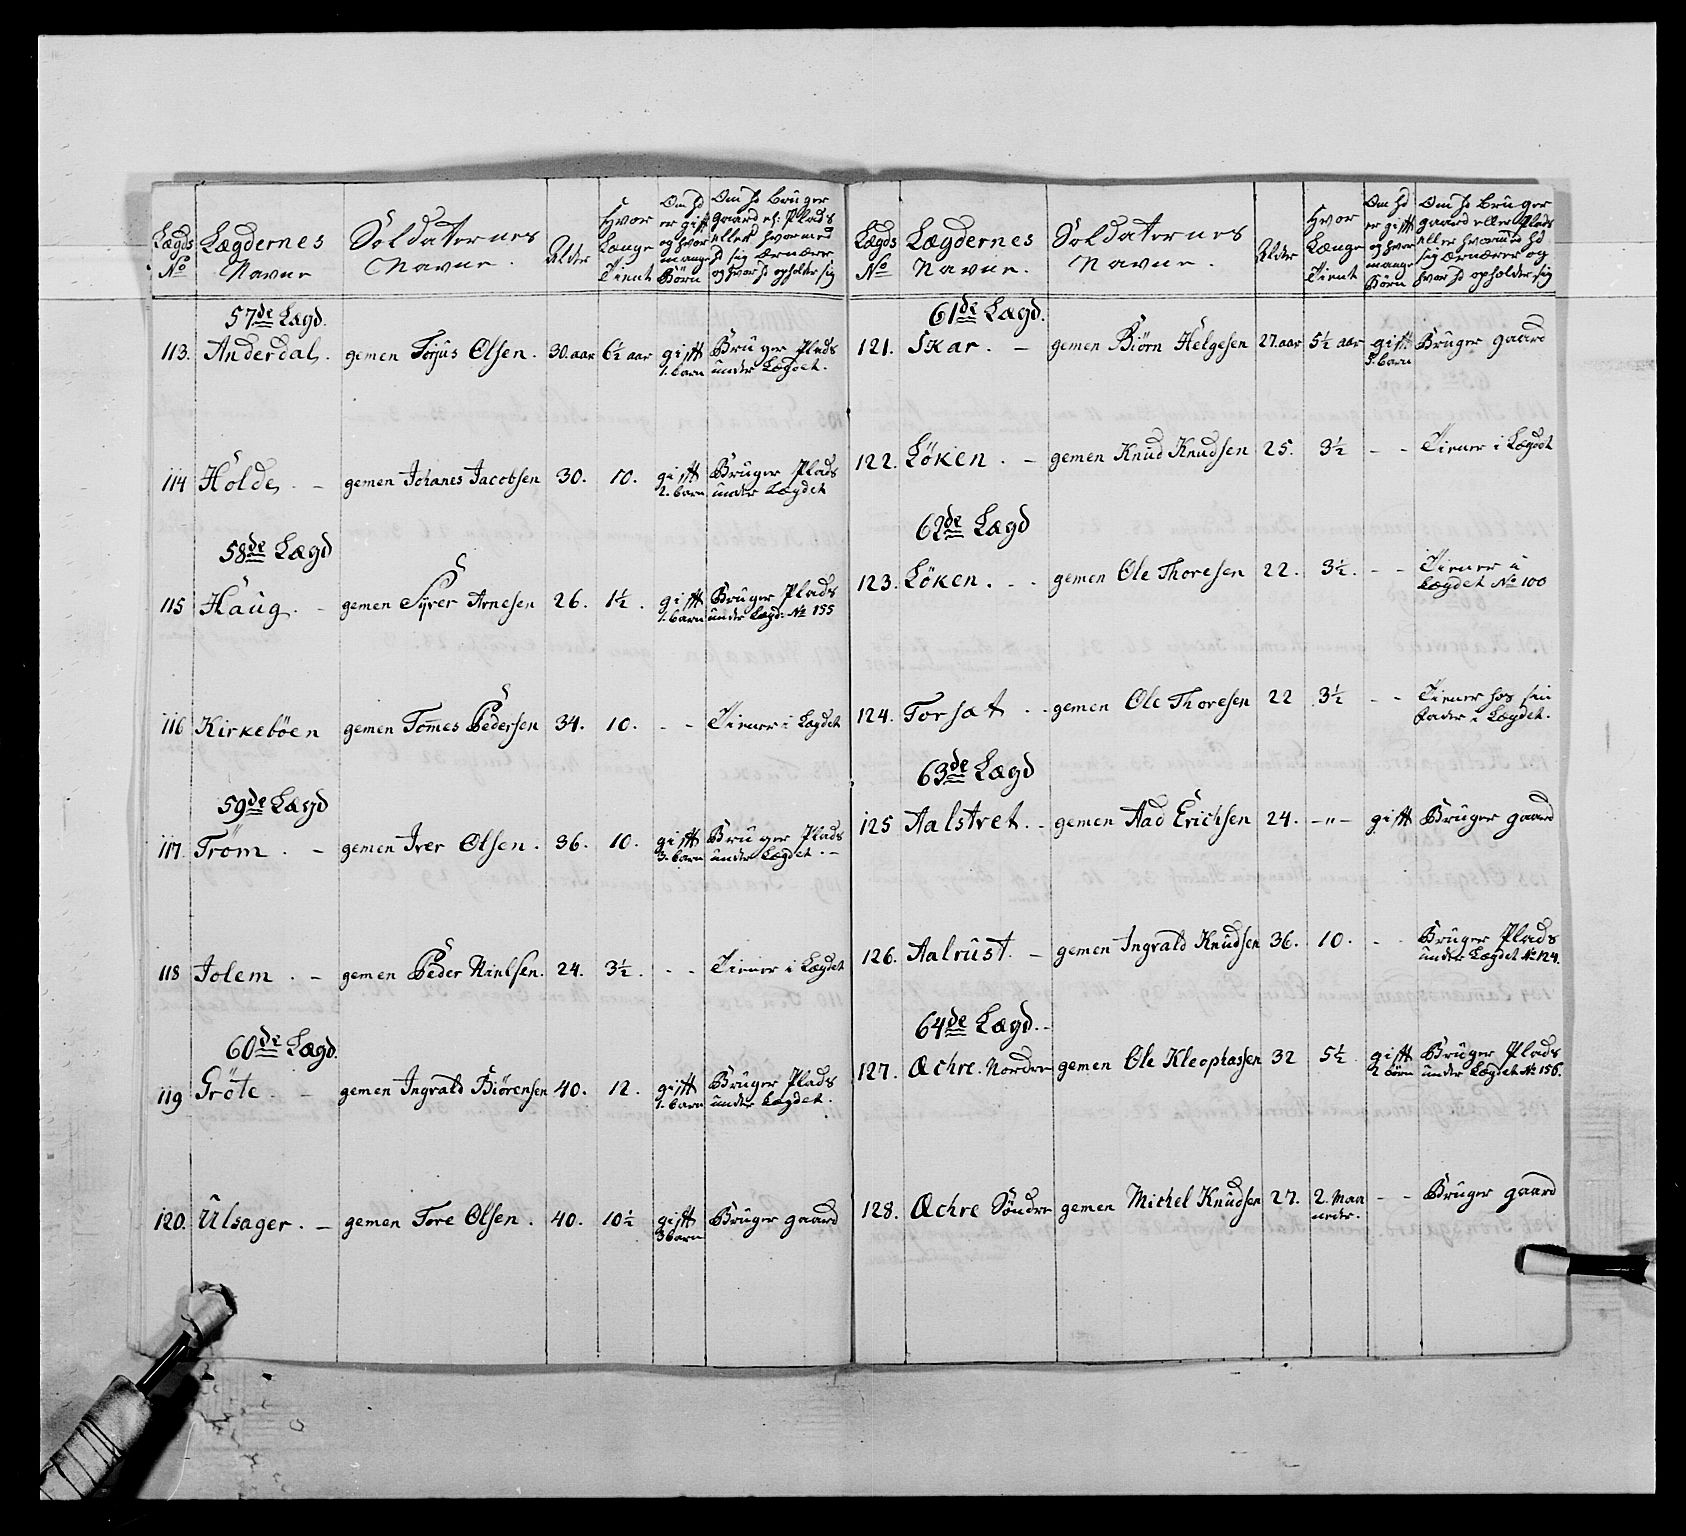 Lægds No
Lægdernes Navne
Soldaternes Navne.
Alder
Hvor Længe Tient
Om hd er gift og hvor mange Börn
Om hd bruger gaard el: Plads eller hvormed hd sig ernærer og hvor hd opholder sig
57de Lægd.
113. Anderdal. gemen Torjus Olsen. 30. aar 6½ aar gift 1. barn Bruger Plads under Lægdet.
114 Holde. - gemen Johanes Jacobsen 30. 10. gift 2. barn Bruger Plads under Lægdet
58de Lægd
115 Haug. - gemen Syver Arnesen 26. 1½. gift 1. barn Bruger Plads under Lægd: No 155
116 Kirkeböen gemen Tomes Pedersen 34. 10. - - Tiener i Lægdet
59de Lægd
117. Tröm. - gemen Iver Olsen. 36. 10. gift 3. barn Bruger Plads under Lægdet. -
118 Jolem. - gemen Peder Nielsen. 24. 3½. - - Tiener i Lægdet
60de Lægd.
119 Gröte. - gemen Ingvald Biörensen 40. 12. gift 1. barn Bruger Plads under Lægdet.
120. Ulsager. - gemen Tore Olsen. 40. 10½ gift 3 barn Bruger gaard
Lægds No
Lægdernes Navne.
Soldaternes Navne.
Alder
Hvor Længe Tient
Om hd er gift og hvor mange Börn
Om hd bruger gaard eller Plads eller hvormed hd sig ernærer og hvor hd opholder sig
61de Lægd.
121. Skar. - gemen Biörn Helgesen 27. aar 5½ aar gift 5. barn Bruger gaard
122. Löken. - gemen Knud Knudsen 25. 3½ - - Tiener i Lægdet
62de Lægd
123. Löken. - - gemen Ole Thoresen 22. 3½. - - Tiener i Lægdet No 100
124. Torsat. - gemen Ole Thoresen 22 3½ - - Tiener hos sin fader i Lægdet.
63de Lægd
125 Aalstvet. - gemen Aad Erichsen 24. -"- gift Bruger gaard
126. Aalrust. - gemen Ingvald Knudsen 36. 10. - - Bruger Plads under Lægdet No 124.
64de Lægd. -
127. Æchre. Nordre gemen Ole Kleophassen 32 5½ gift 2 börn Bruger Plads under Lægdet No 156.
128. Æchre Söndre gemen Michel Knudsen 27. 2. Maaneder. - - Bruger gaard